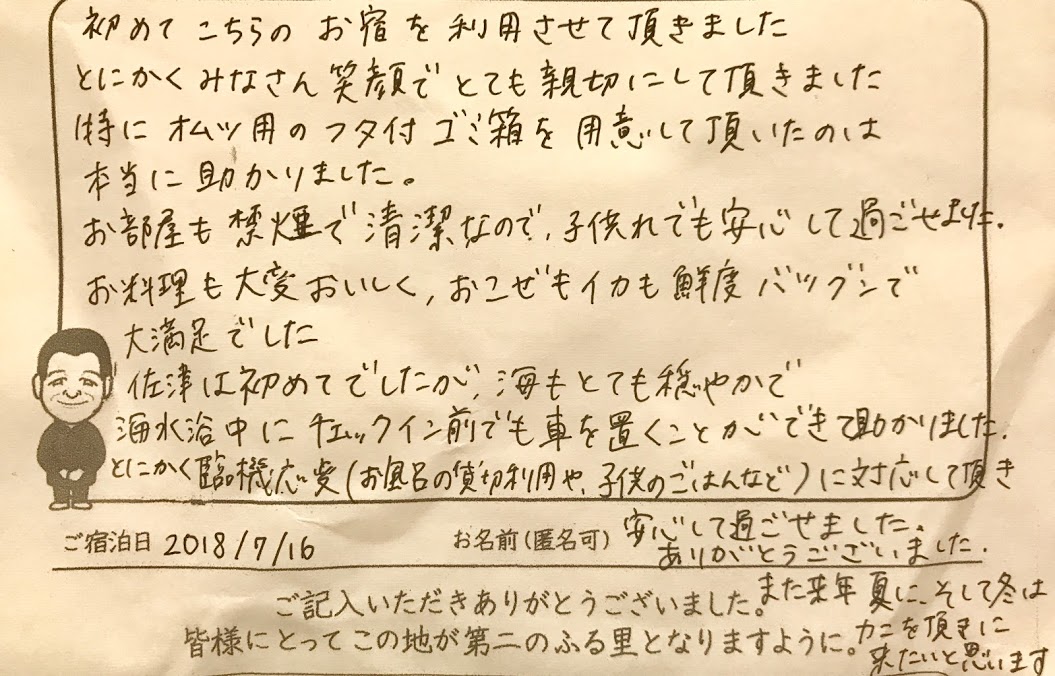 初めて こちらの お宿を 利用させて頂きました
とにかく みなさん 笑顔で とても 親切にして 頂きました
特に オムツ用の フタ付 ゴミ箱を 用意して 頂いたのは
本当に 助かりました。
お部屋も 禁煙で 清潔なので、子供れでも 安心して 過ごせました。
お料理も 大変おいしく、おこぜも イカも 鮮度 バツグンで
大満足でした
佐津は初めてでしたが、海もとても 穏やかで
海水浴中に チェックイン前でも 車を 置くことができて 助かりました。
とにかく 臨機応変(お風呂の貸切利用や、子供のごはんなど)に対応して頂き
安心して過ごせました。
ありがとうございました。
ご宿泊日 2018/7/16 お名前(匿名可)
また来年 夏に、そして冬は
カニを頂きに
来たいと思います
ご記入いただきありがとうございました。
皆様にとってこの地が第二のふる里となりますように。